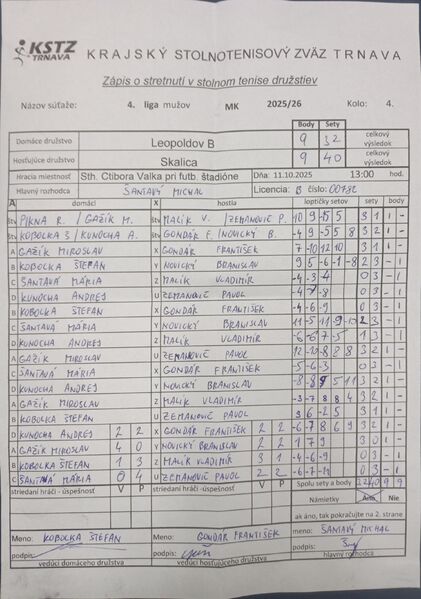 KSTZ TRNAVA KRAJSKÝ STOLNOTENISOVÝ ZVÄZ TRNAVA
Zápis o stretnutí v stolnom tenise družstiev
Názov súťaže: 4. liga mužov MK 2025/26 Kolo: 4.
Body Sety
Domáce družstvo Leopoldov B 9 32 celkový výsledok
Hosťujúce družstvo Skalica 9 40 celkový výsledok
Hracia miestnosť Sth. Ctibora Valka pri futb. štadióne Dňa, 11.10.2025 13:00 hod.
Hlavný rozhodca ŠANTAVÝ MICHAL Licencia: B číslo: 00732
A domáci X hostia loptičky setov sety body
štv PIKNA R. / GAŽÍK M. štv MALÍK V. / ZEMANOVIČ P. 3 1 1 -
štv KOBOLKA Š / KUNOCHA A. štv GONDÁR F. / NOVICKÝ B. 3 2 1 -
A GAŽÍK MIROSLAV X GONDÁR FRANTIŠEK 3 1 1 -
B KOBOLKA ŠTEFAN Y NOVICKÝ BRANISLAV 9 5 -6 -1 -8 2 3 - 1
C ŠANTAVÁ MÁRIA Z MALÍK VLADIMÍR -4 -3 -4 0 3 - 1
D KUNOCHA ANDREJ U ZEMANOVIČ PAVOL -4 -7 -8 0 3 - 1
B KOBOLKA ŠTEFAN X GONDÁR FRANTIŠEK -4 -6 -9 0 3 - 1
C ŠANTAVÁ MÁRIA Y NOVICKÝ BRANISLAV 2 3 - 1
D KUNOCHA ANDREJ Z MALÍK VLADIMÍR 1 3 - 1
A GAŽÍK MIROSLAV U ZEMANOVIČ PAVOL 3 2 1 -
C ŠANTAVÁ MÁRIA X GONDÁR FRANTIŠEK -5 -6 -3 0 3 - 1
D KUNOCHA ANDREJ Y NOVICKÝ BRANISLAV 3 2 1 -
A GAŽÍK MIROSLAV Z MALÍK VLADIMÍR -3 -7 8 8 4 3 2 1 -
B KOBOLKA ŠTEFAN U ZEMANOVIČ PAVOL
D KUNOCHA ANDREJ 2 2 X GONDÁR FRANTIŠEK 2 2 -6 -7 8 6 9 3 2 1 -
A GAŽÍK MIROSLAV 4 0 Y NOVICKÝ BRANISLAV 2 2 1 7 9 3 0 1 -
B KOBOLKA ŠTEFAN 1 3 Z MALÍK VLADIMÍR 3 1 -4 -6 -9 0 3 - 1
C ŠANTAVÁ MÁRIA 0 4 U ZEMANOVIČ PAVOL 2 2 0 3 - 1
striedaní hráči - úspešnosť V P striedaní hráči - úspešnosť V P Spolu sety a body 32 40 9 9
Námietky Áno Nie
ak áno, tak pokračujte na 2. strane
Meno: KOBOLKA ŠTEFAN Meno: GONDÁR FRANTIŠEK meno: ŠANTAVÝ MICHAL
podpis: podpis: podpis:
vedúci domáceho družstva vedúci hosťujúceho družstva hlavný rozhodca